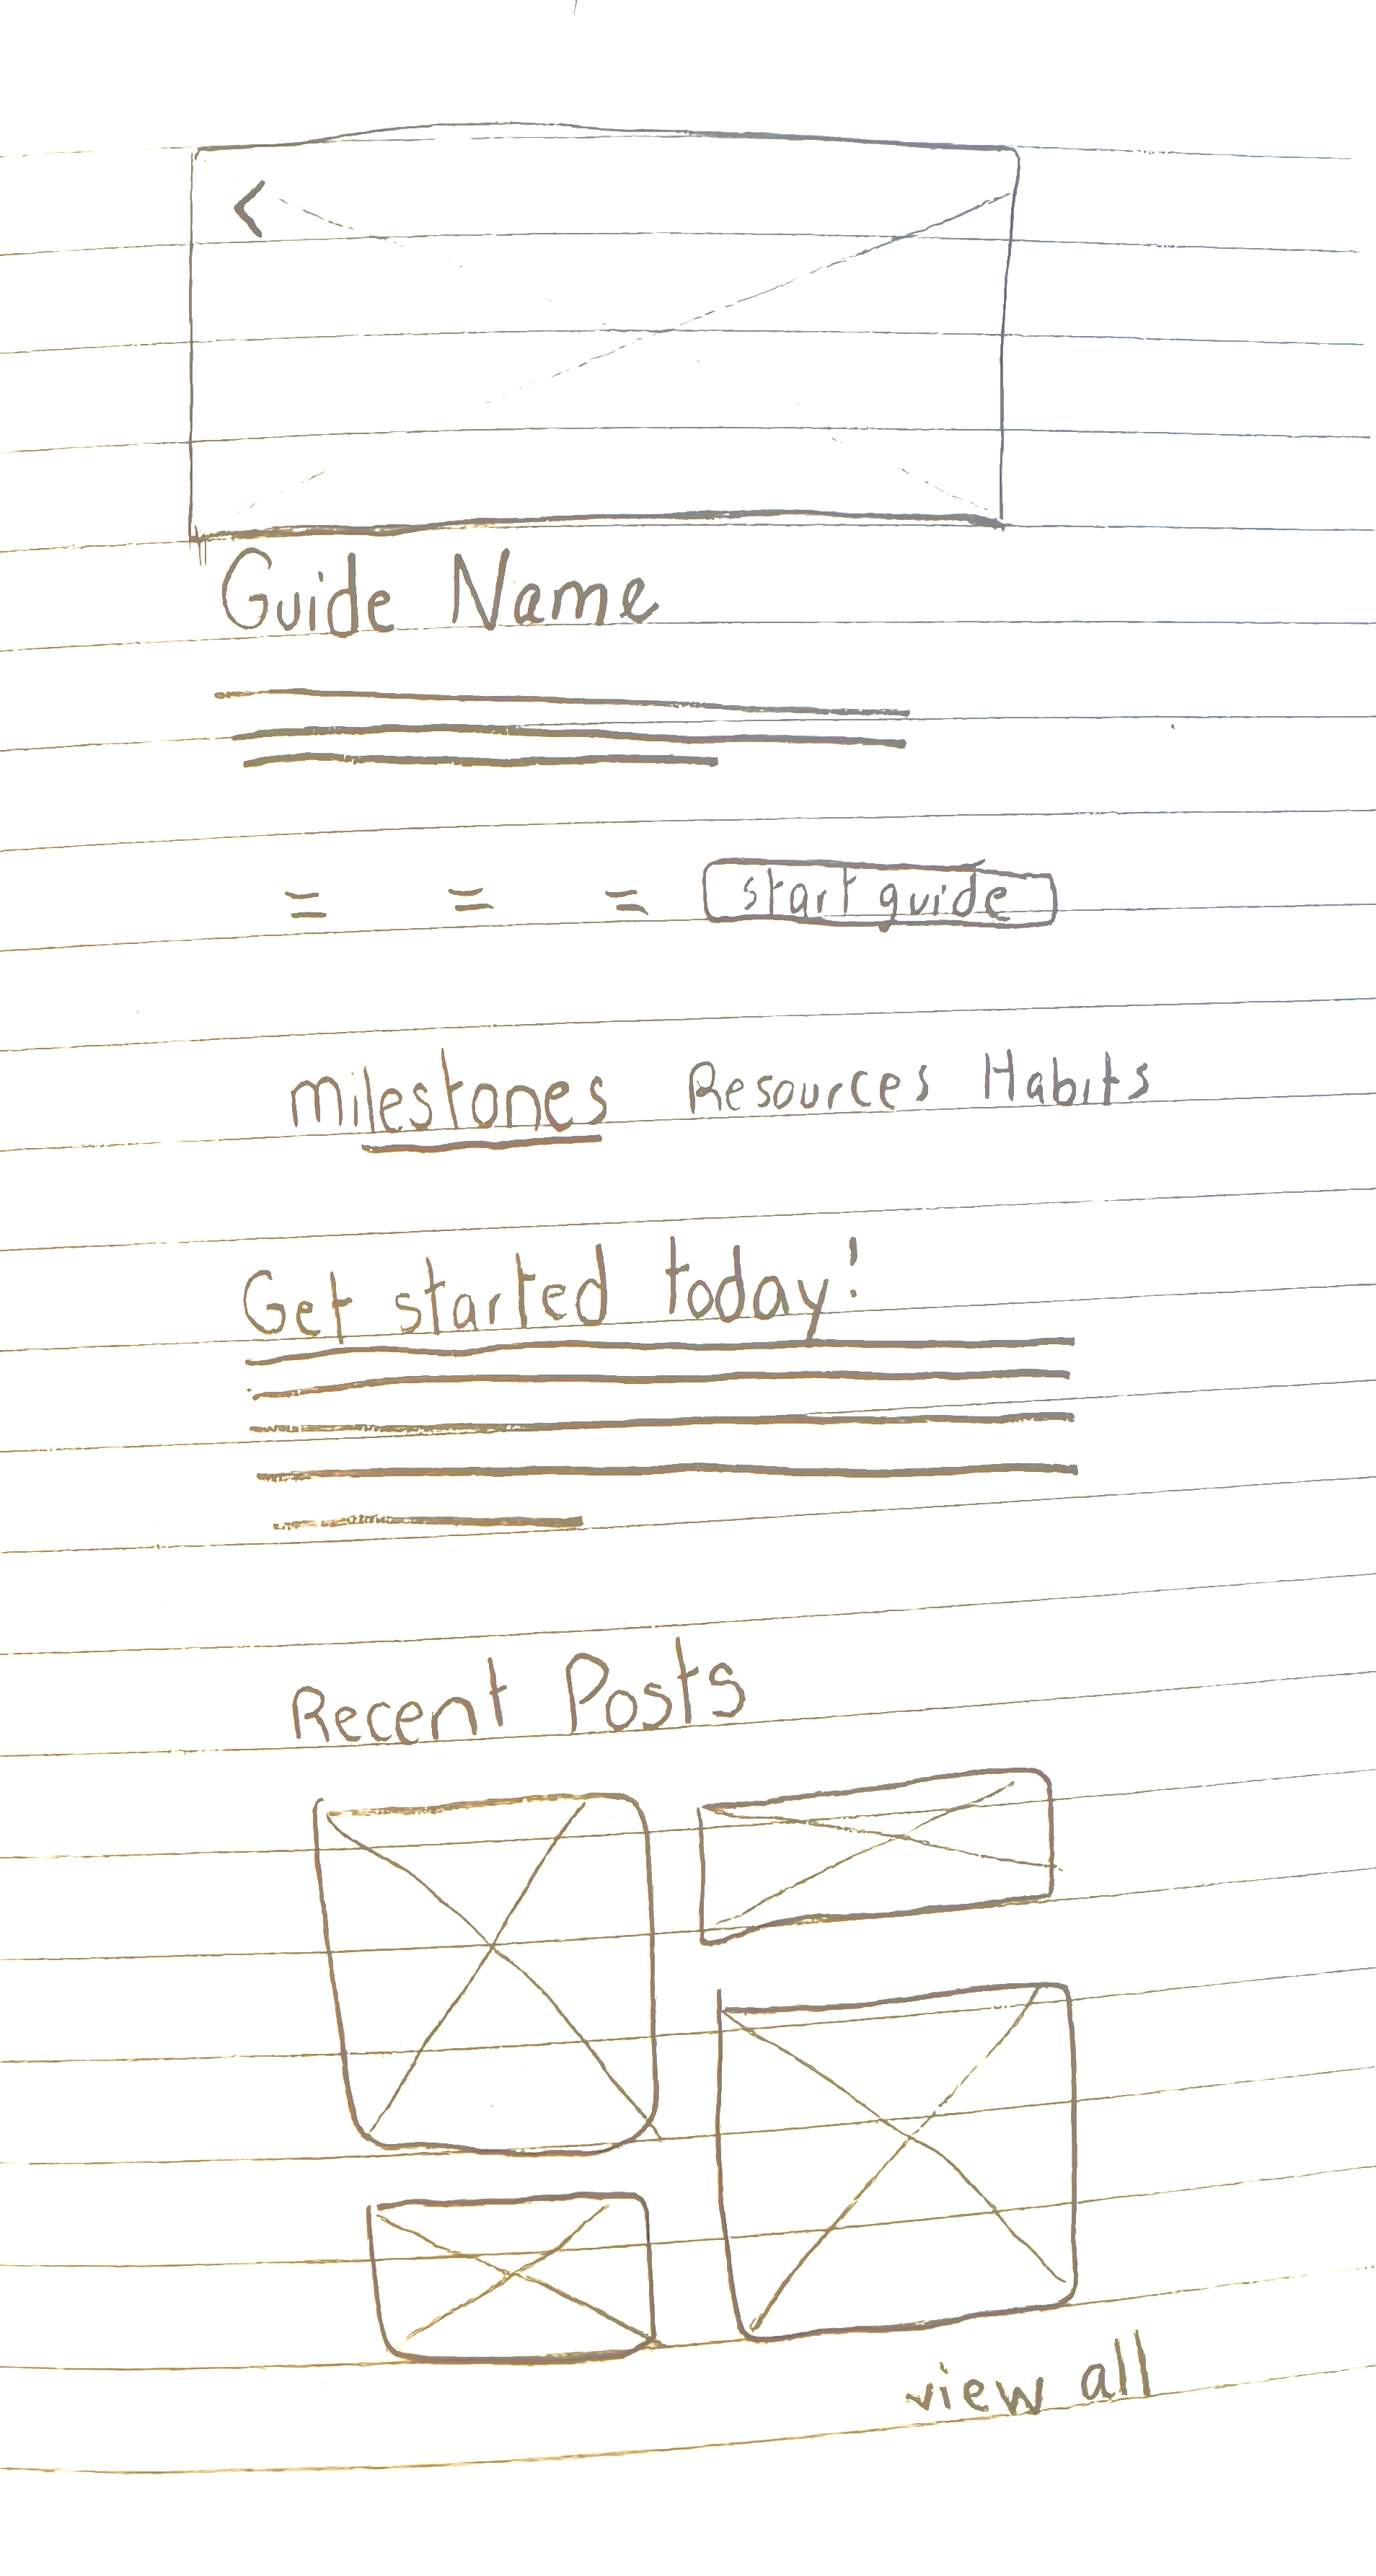 <
Guide Name
start guide
milestones Resources Habits
Get started today!
Recent Posts
view all